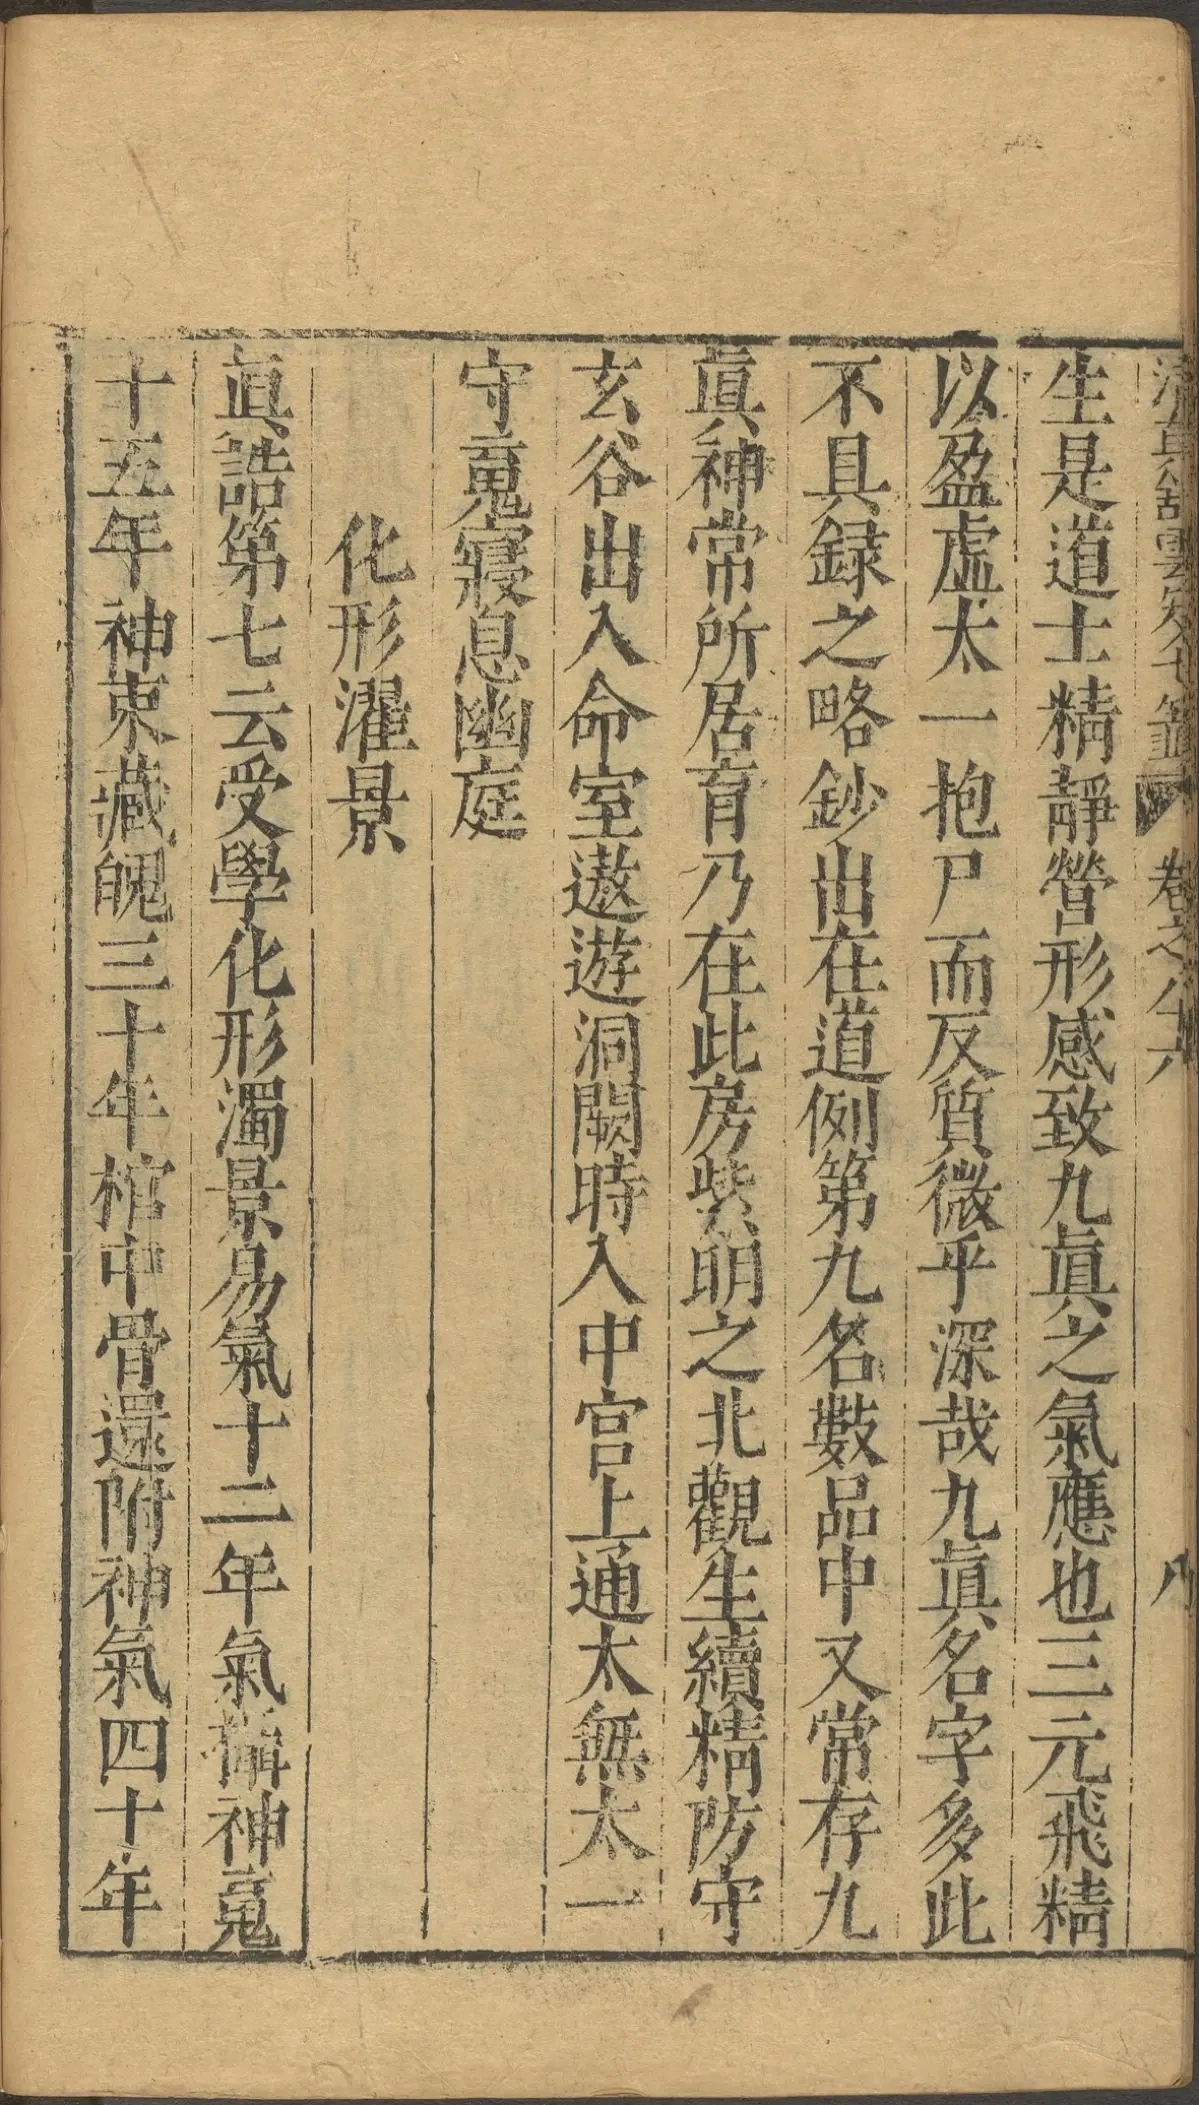 清眞館雲笈七籤 卷之八十六 八
生是道士精靜營形感致九眞之氣應也三元飛精
以盈虛太一抱尸而反質微乎深哉九眞名字多此
不具録之略鈔出在道例第九名數品中又常存九
眞神常所居育乃在此房紫明之北觀生續精防守
玄谷出入命室遨遊洞闕時入中宮上通太無太一
守䰟寢息幽庭
化形濯景
眞誥第七云受學化形濁景易氣十二年氣攝神䰟
十五年神束藏魄三十年棺中骨還附神氣四十年